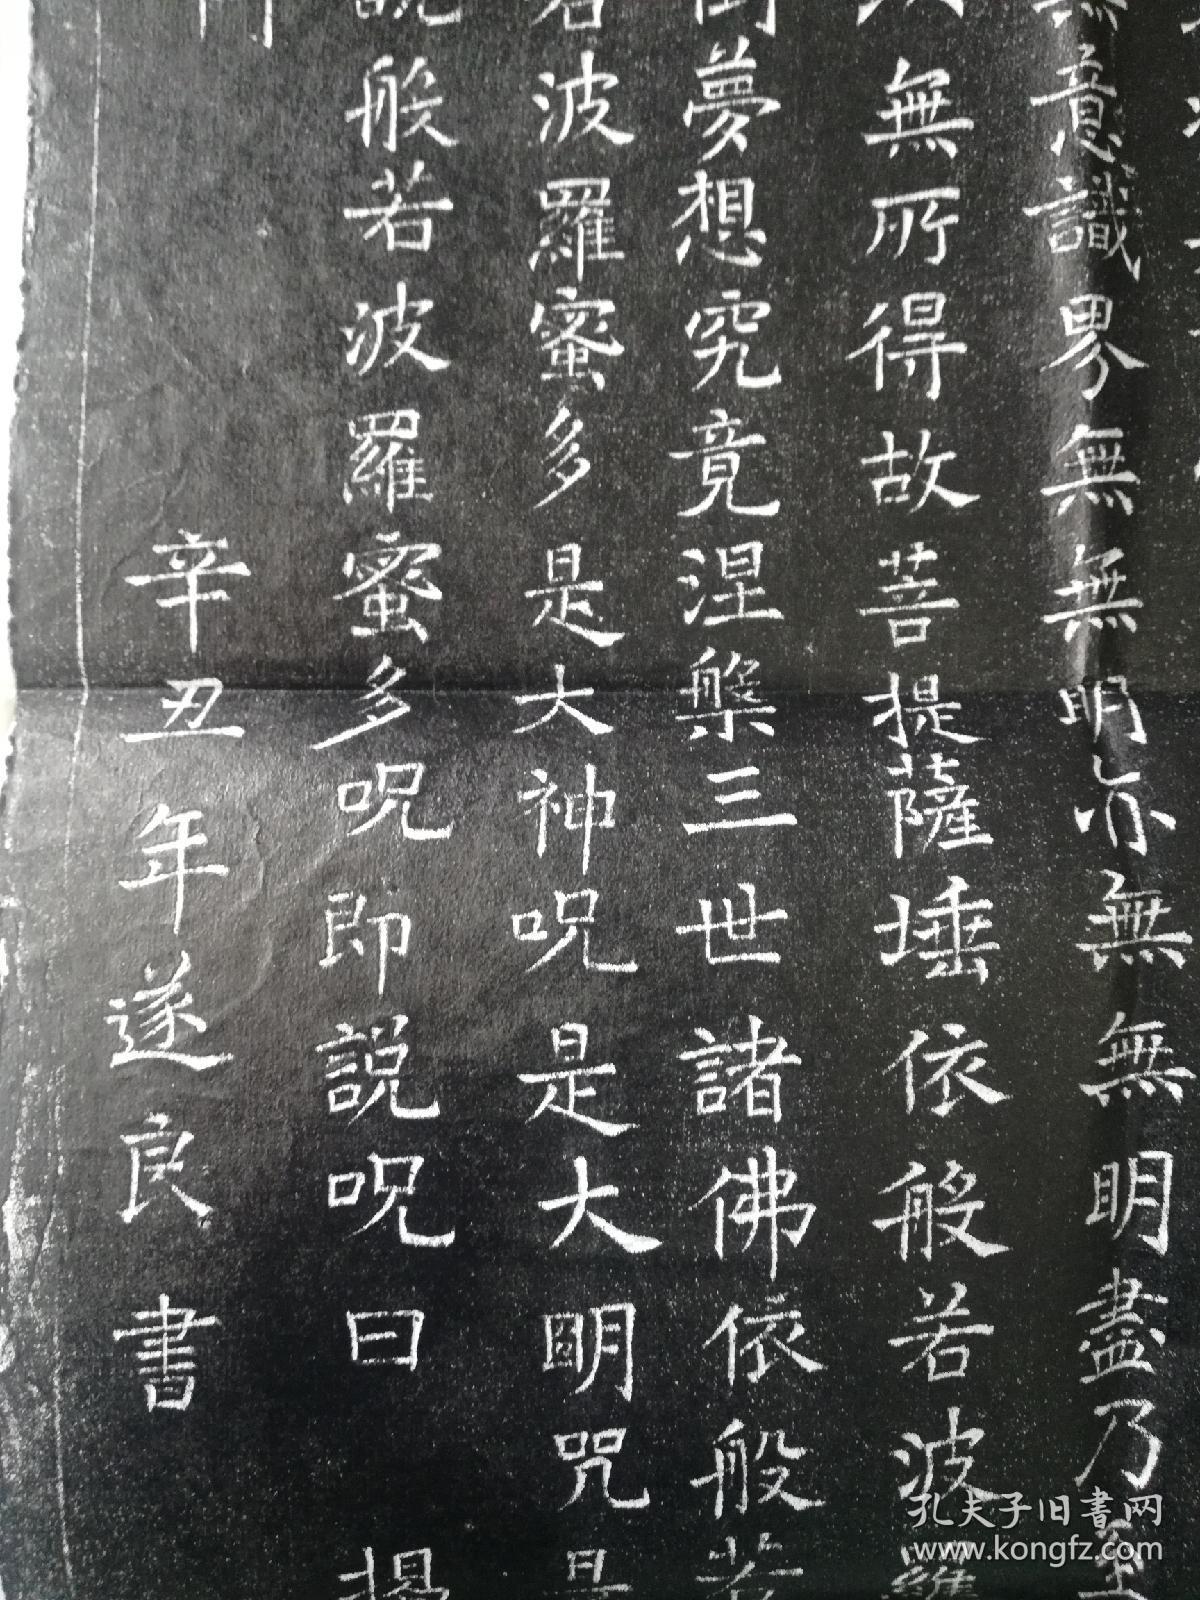 無意識界無無明亦無無明盡乃至
無所得故菩提薩埵依般若波羅
夢想究竟涅槃三世諸佛依般若
若波羅蜜多是大神呪是大明咒是
說般若波羅蜜多呪即說呪曰 揭
辛丑年遂良書
孔夫子旧書网
www.kongfz.com